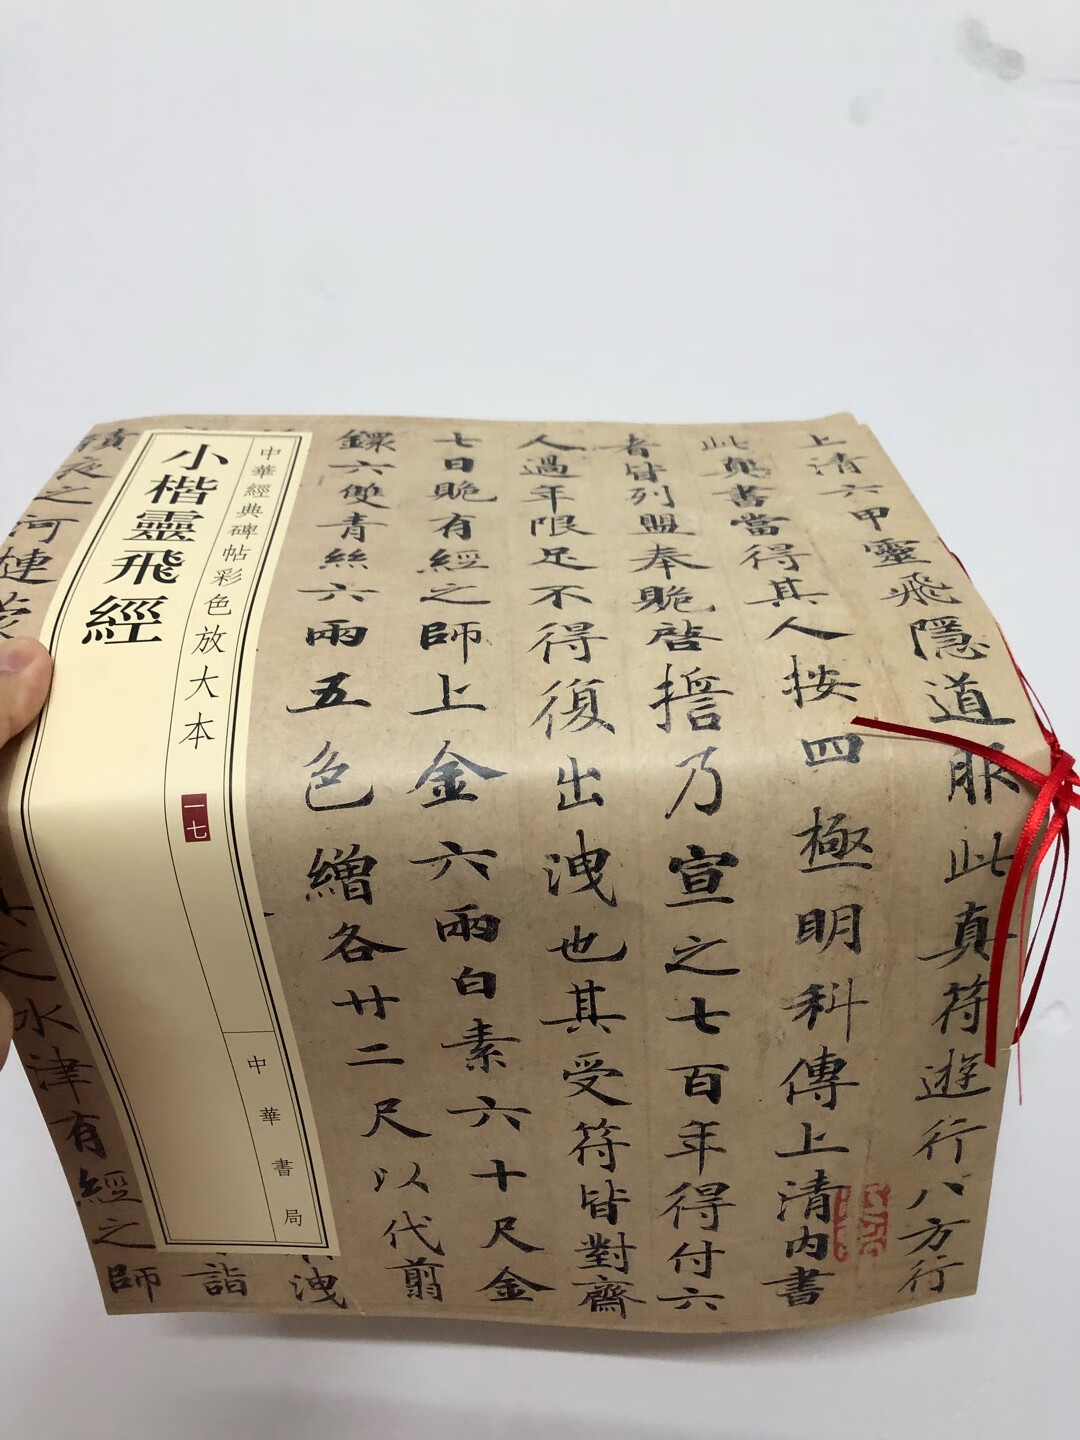 上清六甲靈飛隱道服此真符遊行八方行
此真書當得其人按四極明科傳上清内書
者皆列盟奉貺啓誓乃宣之七百年得付六
人過年限足不得復出洩也其受符皆對齋
七日貺有經之師上金六兩白素六十尺金
鐶六雙青絲六兩五色繒各廿二尺以代翦
洩
詣
中華經典碑帖彩色放大本
一七
小楷靈飛經
中華書局
水津有經之師
夜之河